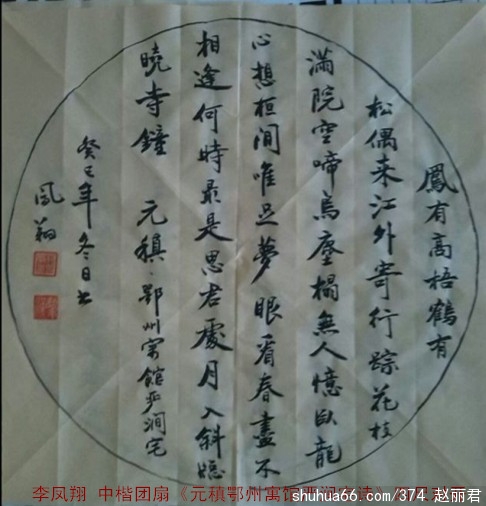 鳳有高梧鶴有
松偶来江外寄行踪花枝
滿院空啼鳥塵榻無人憶臥龍
心想桓间唯足夢眼看春盡不
相逢何時最是思君處月入斜窓
曉寺鐘 元稹·鄂州寓館严涧宅
癸巳年冬日书
凤翔
李凤翔 中楷团扇《元稹鄂州寓馆
shuhua66.com/374 赵丽君